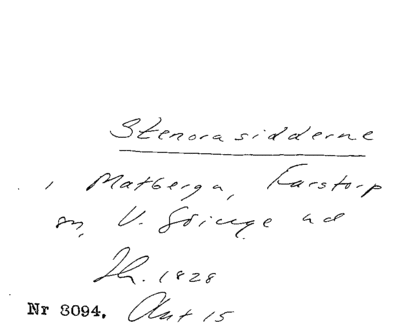 Stenorasidderne
i Matberga, Farstorp
sn, V. Göinge hd
Th. 1828
Nr 3094. Ant 15